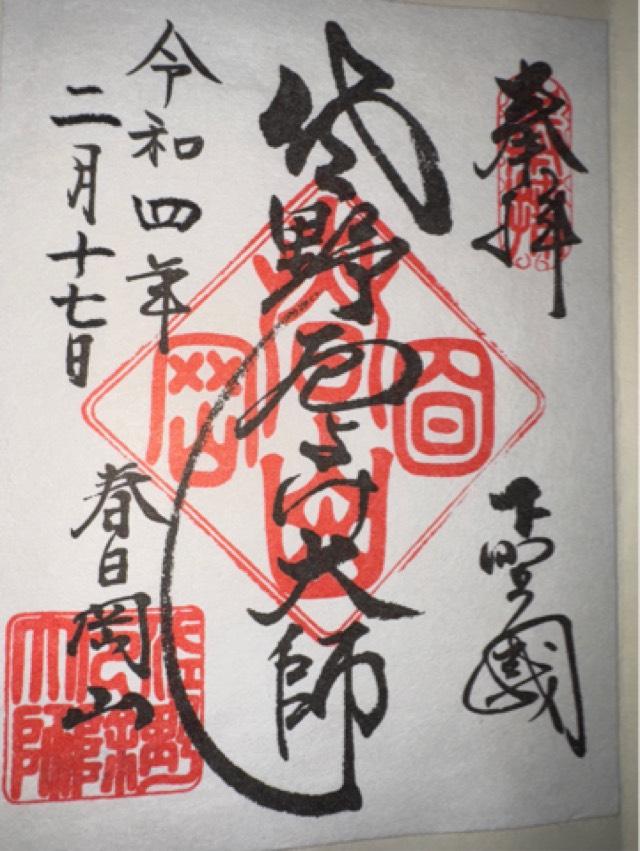 奉拝
下野國
佐野厄よけ大師
令和四年
二月十七日
春日岡山